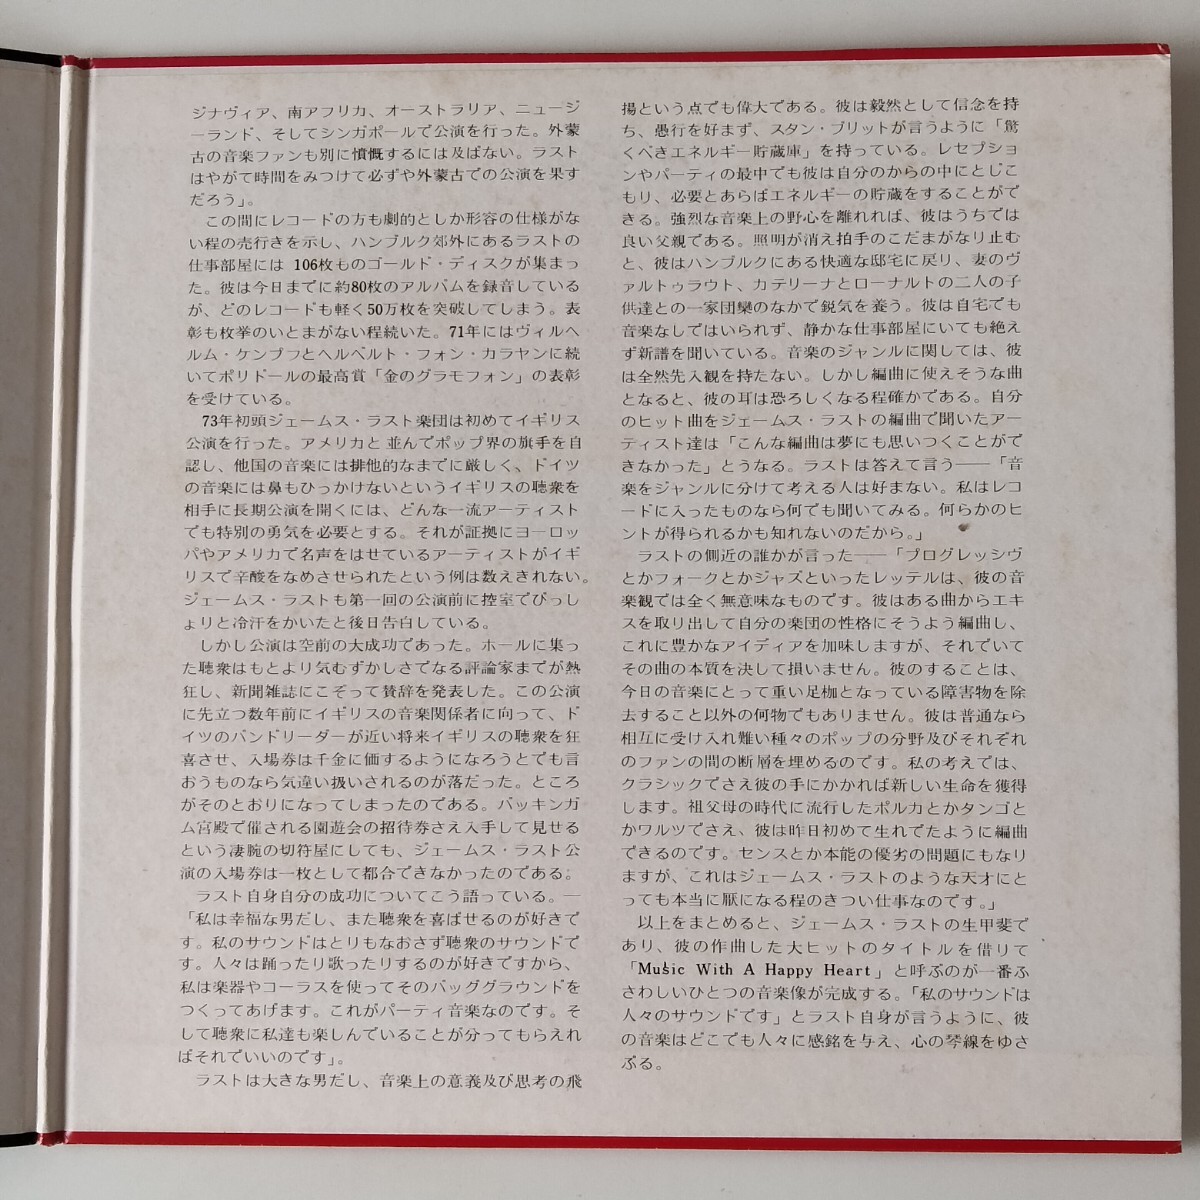 ジナヴィア、南アフリカ、オーストラリア、ニュージ
ーランド、そしてシンガポールで公演を行った。外蒙
古の音楽ファンも別に憤慨するには及ばない。ラスト
はやがて時間をみつけて必ずや外蒙古での公演を果す
だろう」。
この間にレコードの方も劇的としか形容の仕様がな
い程の売行きを示し、ハンブルク郊外にあるラストの
仕事部屋には 106枚ものゴールド・ディスクが集まっ
た。彼は今日までに約80枚のアルバムを録音している
が、どのレコードも軽く50万枚を突破してしまう。表
彰も枚挙のいとまがない程続いた。71年にはヴィルヘ
ルム・ケンプフとヘルベルト・フォン・カラヤンに続
いてポリドールの最高賞「金のグラモフォン」の表彰
を受けている。
73年初頭ジェームス・ラスト楽団は初めてイギリス
公演を行った。アメリカと並んでポップ界の旗手を自
認し、他国の音楽には排他的なまでに厳しく、ドイツ
の音楽には鼻もひっかけないというイギリスの聴衆を
相手に長期公演を開くには、どんな一流アーティスト
でも特別の勇気を必要とする。それが証拠にヨーロッ
パやアメリカで名声をはせているアーティストがイギ
リスで辛酸をなめさせられたという例は数えきれない。
ジェームス・ラストも第一回の公演前に控室でびっし
ょりと冷汗をかいたと後日告白している。
しかし公演は空前の大成功であった。ホールに集っ
た聴衆はもとより気むずかしさでなる評論家までが熱
狂し、新聞雑誌にこぞって賛辞を発表した。この公演
に先立つ数年前にイギリスの音楽関係者に向って、ド
イツのバンドリーダーが近い将来イギリスの聴衆を狂
喜させ、入場券は千金に価するようになろうとでも言
おうものなら気違い扱いされるのが落だった。ところ
がそのとおりになってしまったのである。バッキンガ
ム宮殿で催される園遊会の招待券さえ入手して見せる
という凄腕の切符屋にしても、ジェームス・ラスト公
演の入場券は一枚として都合できなかったのである。
ラスト自身自分の成功についてこう語っている。—
「私は幸福な男だし、また聴衆を喜ばせるのが好きで
す。私のサウンドはとりもなおさず聴衆のサウンドで
す。人々は踊ったり歌ったりするのが好きですから、
私は楽器やコーラスを使ってそのバッググラウンドを
つくってあげます。これがパーティ音楽なのです。そ
して聴衆に私達も楽しんでいることが分ってもらえれ
ばそれでいいのです」。
ラストは大きな男だし、音楽上の意義及び思考の飛
揚という点でも偉大である。彼は毅然として信念を持
ち、愚行を好まず、スタン・ブリットが言うように「驚
くべきエネルギー貯蔵庫」を持っている。レセプショ
ンやパーティの最中でも彼は自分のからの中にとじこ
もり、必要とあらばエネルギーの貯蔵をすることがで
きる。強烈な音楽上の野心を離れれば、彼はうちでは
良い父親である。照明が消え拍手のこだまがなり止む
と、彼はハンブルクにある快適な邸宅に戻り、妻のヴ
ァルトゥラウト、カテリーナとローナルトの二人の子
供達との一家団欒のなかで鋭気を養う。彼は自宅でも
音楽なしではいられず、静かな仕事部屋にいても絶え
ず新譜を聞いている。音楽のジャンルに関しては、彼
は全然先入観を持たない。しかし編曲に使えそうな曲
となると、彼の耳は恐ろしくなる程確かである。自分
のヒット曲をジェームス・ラストの編曲で聞いたアー
ティスト達は「こんな編曲は夢にも思いつくことがで
きなかった」とうなる。ラストは答えて言う——「音
楽をジャンルに分けて考える人は好まない。私はレコ
ードに入ったものなら何でも聞いてみる。何らかのヒ
ントが得られるかも知れないのだから。」
ラストの側近の誰かが言った——「プログレッシヴ
とかフォークとかジャズといったレッテルは、彼の音
楽観では全く無意味なものです。彼はある曲からエキ
スを取り出して自分の楽団の性格にそうよう編曲し、
これに豊かなアイディアを加味しますが、それでいて
その曲の本質を決して損いません。彼のすることは、
今日の音楽にとって重い足枷となっている障害物を除
去すること以外の何物でもありません。彼は普通なら
相互に受け入れ難い種々のポップの分野及びそれぞれ
のファンの間の断層を埋めるのです。私の考えでは、
クラシックでさえ彼の手にかかれば新しい生命を獲得
します。祖父母の時代に流行したポルカとかタンゴと
かワルツでさえ、彼は昨日初めて生れでたように編曲
できるのです。センスとか本能の優劣の問題にもなり
ますが、これはジェームス・ラストのような天才にと
っても本当に厭になる程のきつい仕事なのです。」
以上をまとめると、ジェームス・ラストの生甲斐で
あり、彼の作曲した大ヒットのタイトルを借りて
「Music With A Happy Heart」と呼ぶのが一番ふ
さわしいひとつの音楽像が完成する。「私のサウンドは
人々のサウンドです」とラスト自身が言うように、彼
の音楽はどこでも人々に感銘を与え、心の琴線をゆさ
ぶる。